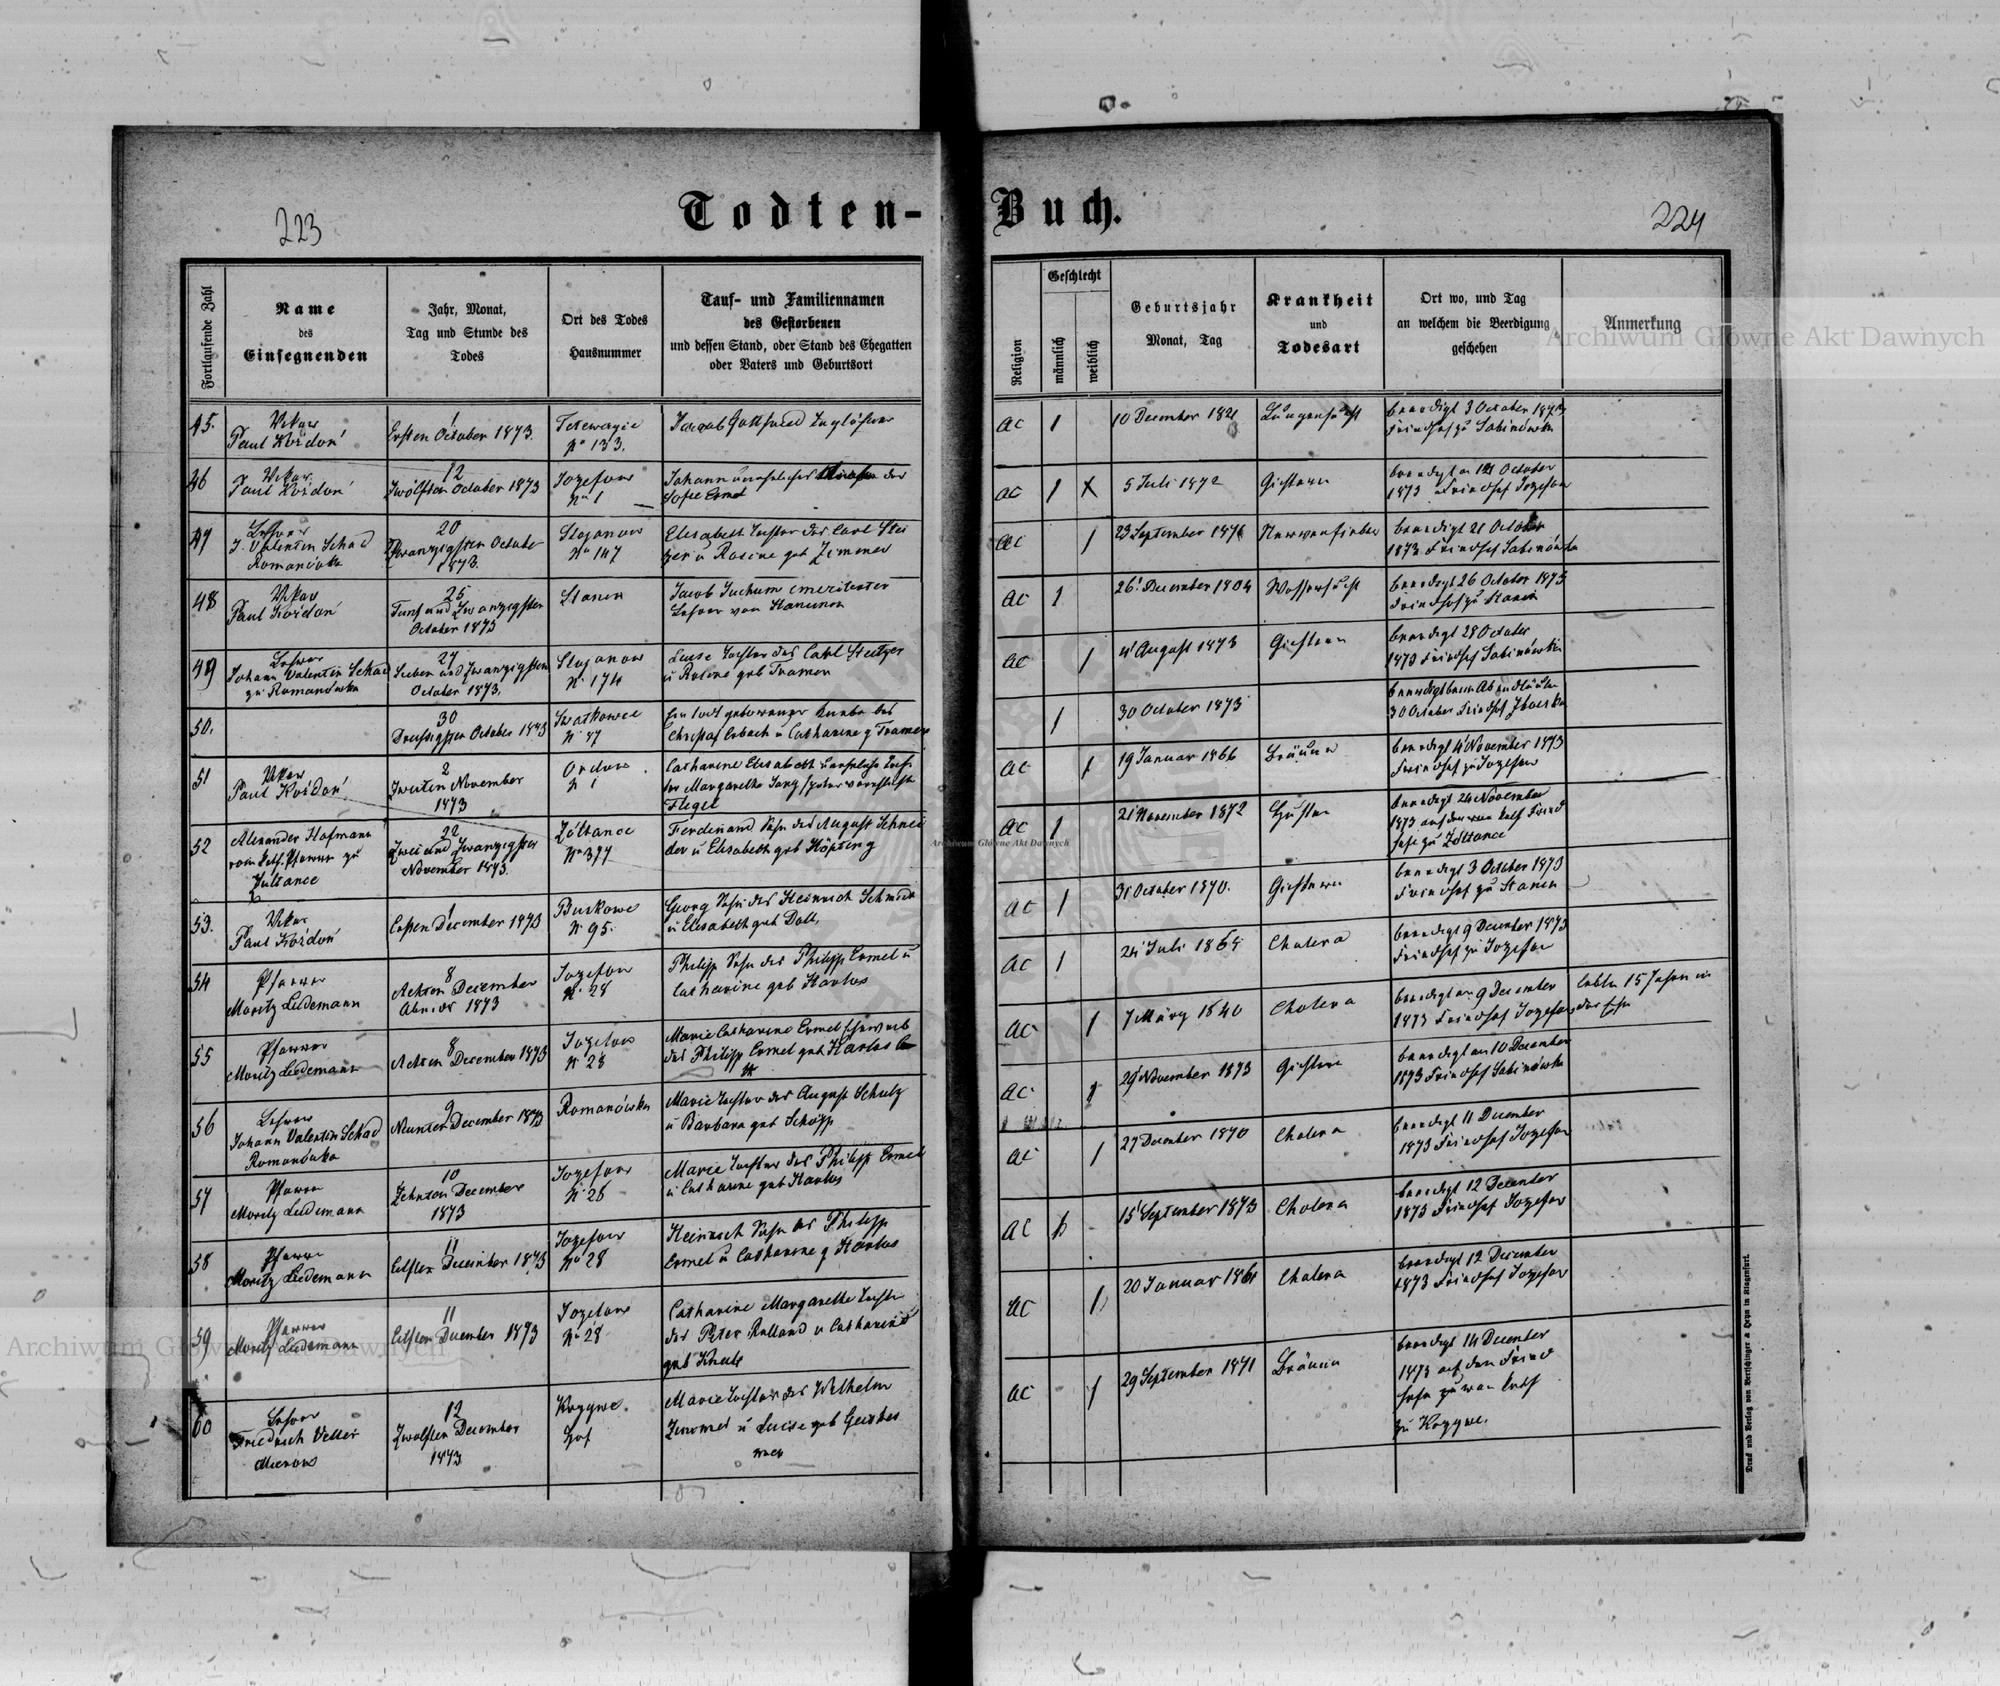 Todten-
Buch.
223
224
Fortlaufende Zahl
Name
des
Einsegnenden
Jahr, Monat,
Tag und Stunde des
Todes
Ort des Todes
Hausnummer
Tauf- und Familiennamen
des Gestorbenen
und dessen Stand, oder Stand des Ehegatten
oder Vaters und Geburtsort
Religion
Geschlecht
männlich
weiblich
Geburtsjahr
Monat, Tag
Krankheit
und
Todesart
Ort wo, und Tag
an welchem die Beerdigung
geschehen
Anmerkung
45.
Vikar
Paul Kozdoń
1
Ersten October 1873.
No 133.
Jacob Gottfried
46
Vikar
Paul Kozdoń
12
Zwölften October 1873
Jozefow
No 1
Johann unehelicher
der
Sofie Ermel
47
Lehrer
J. Valentin Schad
Romanówka
20
Zwanzigsten October
1873.
Stojanow
No 147
Elisabeth Tochter des Carl
u Rosine geb Zimmer
48
Vikar
Paul Kozdoń
25
Fünf und Zwanzigsten
October 1873
Stanin
Jacob Juchum emeritirter
Lehrer von
49
Lehrer
Johann Valentin Schad
zu Romanówka
27
Sieben und Zwanzigsten
October 1873.
Stojanow
No 174
Luise Tochter des Carl
u Rosine geb Tramer
50.
30
Dreissigsten October 1873
No 47
Ein todt geborener Knabe des
Christof Erbach u Catharine g Tramer
51
Vikar
Paul Kozdoń
2
Zweiten November
1873
Ordow
No 1
Catharine Elisabeth uneheliche Toch-
ter Margarethe Jung später verehelichte
Flegel
52
Alexander Hofmann
röm kath. Pfarrer zu
Zultance
22
Zwei und Zwanzigsten
November 1873.
Zółtance
No 377
Ferdinand Sohn des August Schnei
der u Elisabeth geb Höpfing
53.
Vikar
Paul Kozdoń
1
Ersten December 1873
No 95.
Georg Sohn des Heinrich Schmidt
u Elisabeth geb Doll
54
Pfarrer
Moritz Ludemann
8
Achten December
Abends 1873
Jozefow
No 28
Philipp Sohn des Philipp Ermel u
Catharine geb Harlos
55
Pfarrer
Moritz Ludemann
8
Achten December 1873
Jozefow
No 28
Marie Catharine Ermel Eheweib
des Philipp Ermel geb Harlos
56
Lehrer
Johann Valentin Schad
Romanówka
9
Neunten December 1873
Romanówka
Marie Tochter des August Schulz
u Barbara geb Schöpp
57
Pfarrer
Moritz Ludemann
10
Zehnten December
1873
Jozefow
No 28
Marie Tochter des Philipp Ermel
u Catharine geb Harlos
58
Pfarrer
Moritz Ludemann
11
Eilften December 1873
Jozefow
No 28
Heinrich Sohn des Philipp
Ermel u Catharine g Harlos
59
Pfarrer
Moritz Ludemann
11
Eilften December 1873
Jozefow
No 28
Catharine Margarethe Tochter
des Peter Rulland u Catharine
geb
60
Lehrer
Friedrich Vetter
Mierow
12
Zwölften December
1873
Hof
Marie Tochter des Wilhelm
Zimmer u Luise geb
AC 1
10 December 182
Lungensucht
beerdigt 3 October 1873
Friedhof zu Sabinówka
AC 1 X
5 Juli 1872
Gichtern
beerdigt am 14 October
1873 Friedhof Jozefow
AC 1
23 September 187
Nervenfieber
beerdigt 21 October
1873 Friedhof Sabinówka
AC 1
26 December 1804
Wassersucht
beerdigt 26 October 1873
Friedhof zu Stanin
AC 1
4 August 1873
Gichtern
beerdigt 28 October
1873 Friedhof Sabinówka
1
30 October 1873
beerdigt beim Abendläuten
30 October Friedhof
AC 1
19 Januar 1866
Bräune
beerdigt 4 November 1873
Friedhof zu Jozefow
AC 1
21 November 1872
Husten
beerdigt 24 November
1873 auf dem röm kath Fried
hofe zu Zółtance
AC 1
31 October 1870.
Gichtern
beerdigt 3 October 1873
Friedhof zu Stanin
AC 1
24 Juli 1864
Cholera
beerdigt 9 December 1873
Friedhof zu Jozefow
AC 1
7 März 1840
Cholera
beerdigt am 9 December
1873 Friedhof Jozefow
lebte 15 Jahre in
der Ehe
AC 1
29 November 1873
Gichtern
beerdigt am 10 December
1873 Friedhof Sabinówka
AC 1
27 December 1870
Cholera
beerdigt 11 December
1873 Friedhof Jozefow
AC
15 September 1873
Cholera
beerdigt 12 December
1873 Friedhof Jozefow
AC 1
20 Januar 1861
Cholera
beerdigt 12 December
1873 Friedhof Jozefow
AC 1
29 September 1871
Bräune
beerdigt 14 December
1873 auf dem Fried
hofe zu röm kath
zu
Druck und Verlag von Bertschinger & Heyn in Klagenfurt.
Archiwum Główne Akt Dawnych
Archiwum Główne Akt Dawnych
Archiwum Główne Akt Dawnych